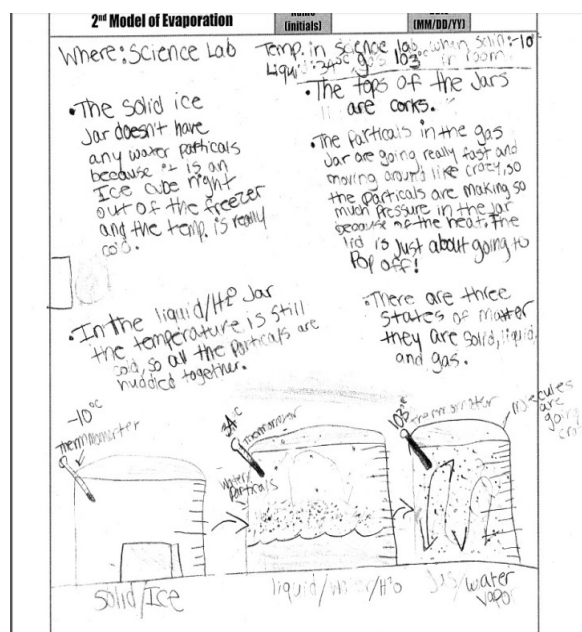 2nd Model of Evaporation
(initials)
(MM/DD/YY)
Where: Science Lab
Temp. in science lab when solid: -10°
Liquid: 34°C gas 103°C in room
• The solid ice
Jar doesn't have
any water particals
because it is an
Ice cube right
out of the freezer
and the temp. is really
cold.
• The tops of the Jars
are corks.
• The particals in the gas
Jar are going really fast and
moving around like crazy, so
the particals are making so
much pressure in the jar
because of the heat. The
lid is just about going to
Pop off!
• In the liquid/H²O Jar
the temperature is still
cold, so all the particals are
huddled together.
• There are three
states of matter
they are solid, liquid,
and gas.
-10°C
thermomerter
34°C
thermometer
water
particals
103°C
thermometer
molecules
are
going
solid/Ice
liquid/water/H²O
gas/water
vapor